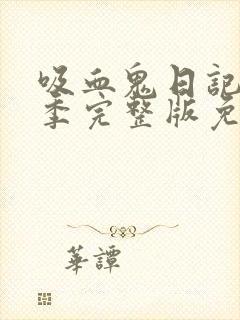 吸血鬼日記
季完整版免
華譚